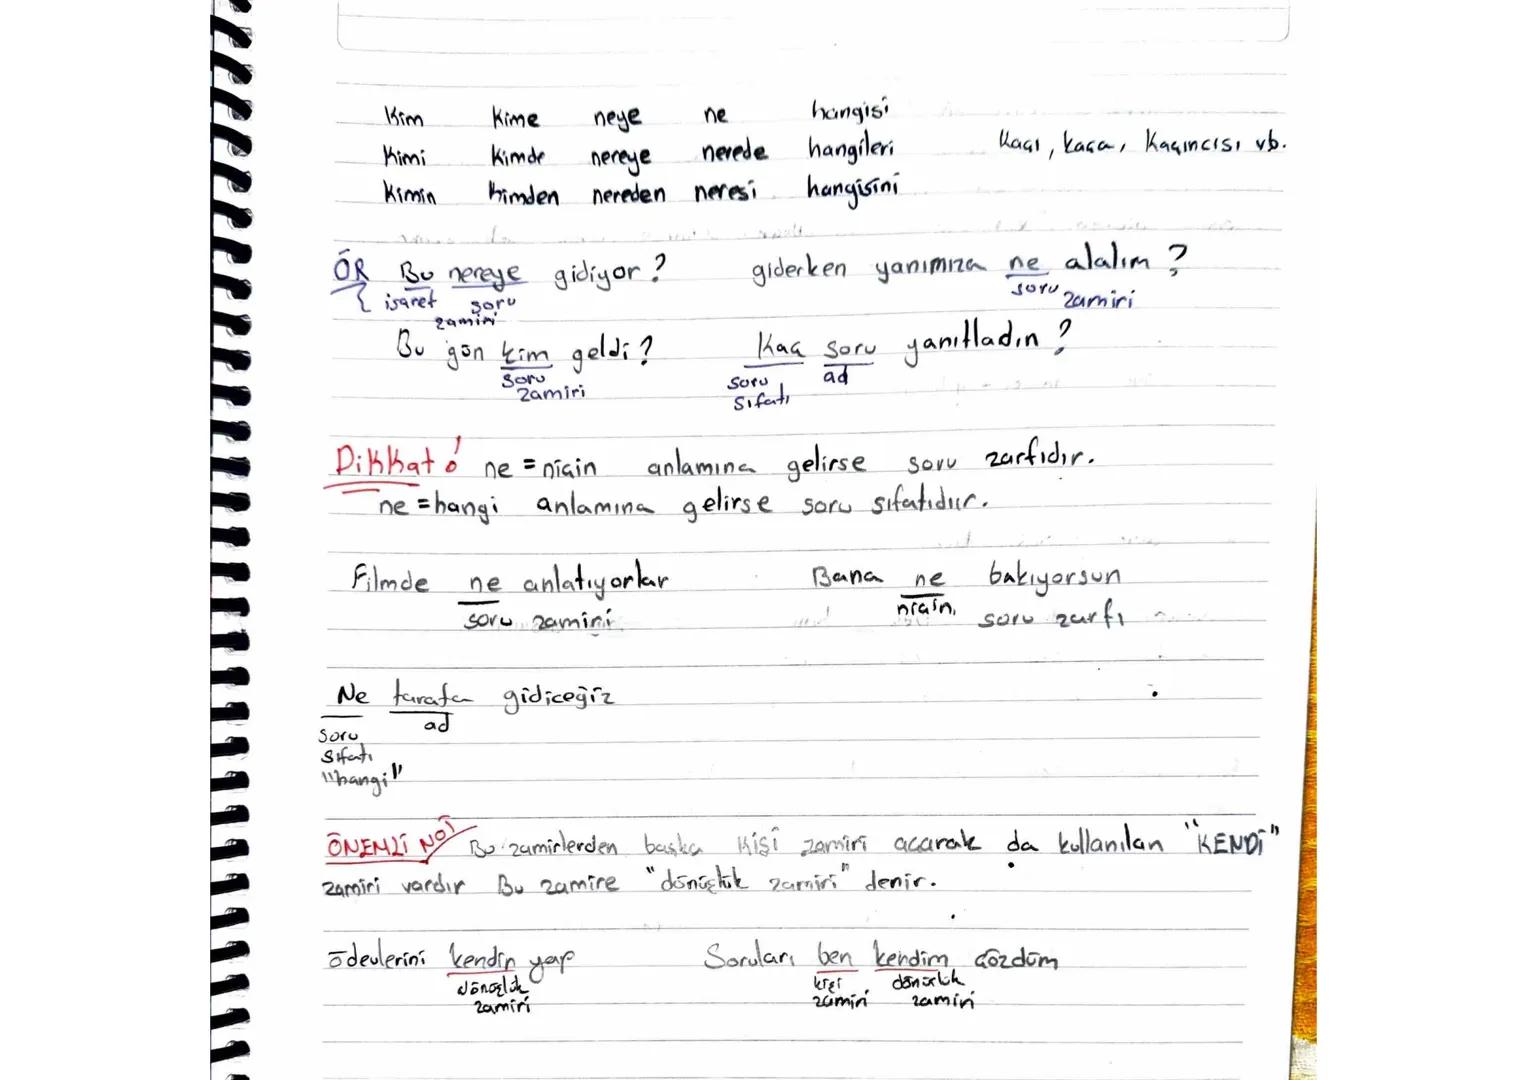 Kim Kime neye ne hangisi
Kimi Kimde nereye nerede hangileri Kaçı, kaça, Kaçıncısı vb.
Kimin Kimden nereden neresi hangisini
ÖR Bu nereye gidiyor? giderken yanımıza ne alalım?
işaret soru zamiri soru zamiri
Bu gün kim geldi? Kaç soru yanıtladın?
soru zamiri soru sıfatı ad
Dikkat! ne = niçin anlamına gelirse soru zarfıdır.
ne = hangi anlamına gelirse soru sıfatıdır.
Filmde ne anlatıyorlar Bana ne bakıyorsun
soru zamiri niçin, soru zarfı
Ne tarafa gidiceğiz
soru sıfatı "hangi" ad
ÖNEMLİ NOT Bu zamirlerden başka kişi zamiri acarak da kullanılan "KENDİ"
zamiri vardır Bu zamire "dönüşlük zamiri" denir.
ödevlerini kendin yap Soruları ben kendim çözdüm
dönüşlük zamiri kişi zamiri dönüşlük zamiri